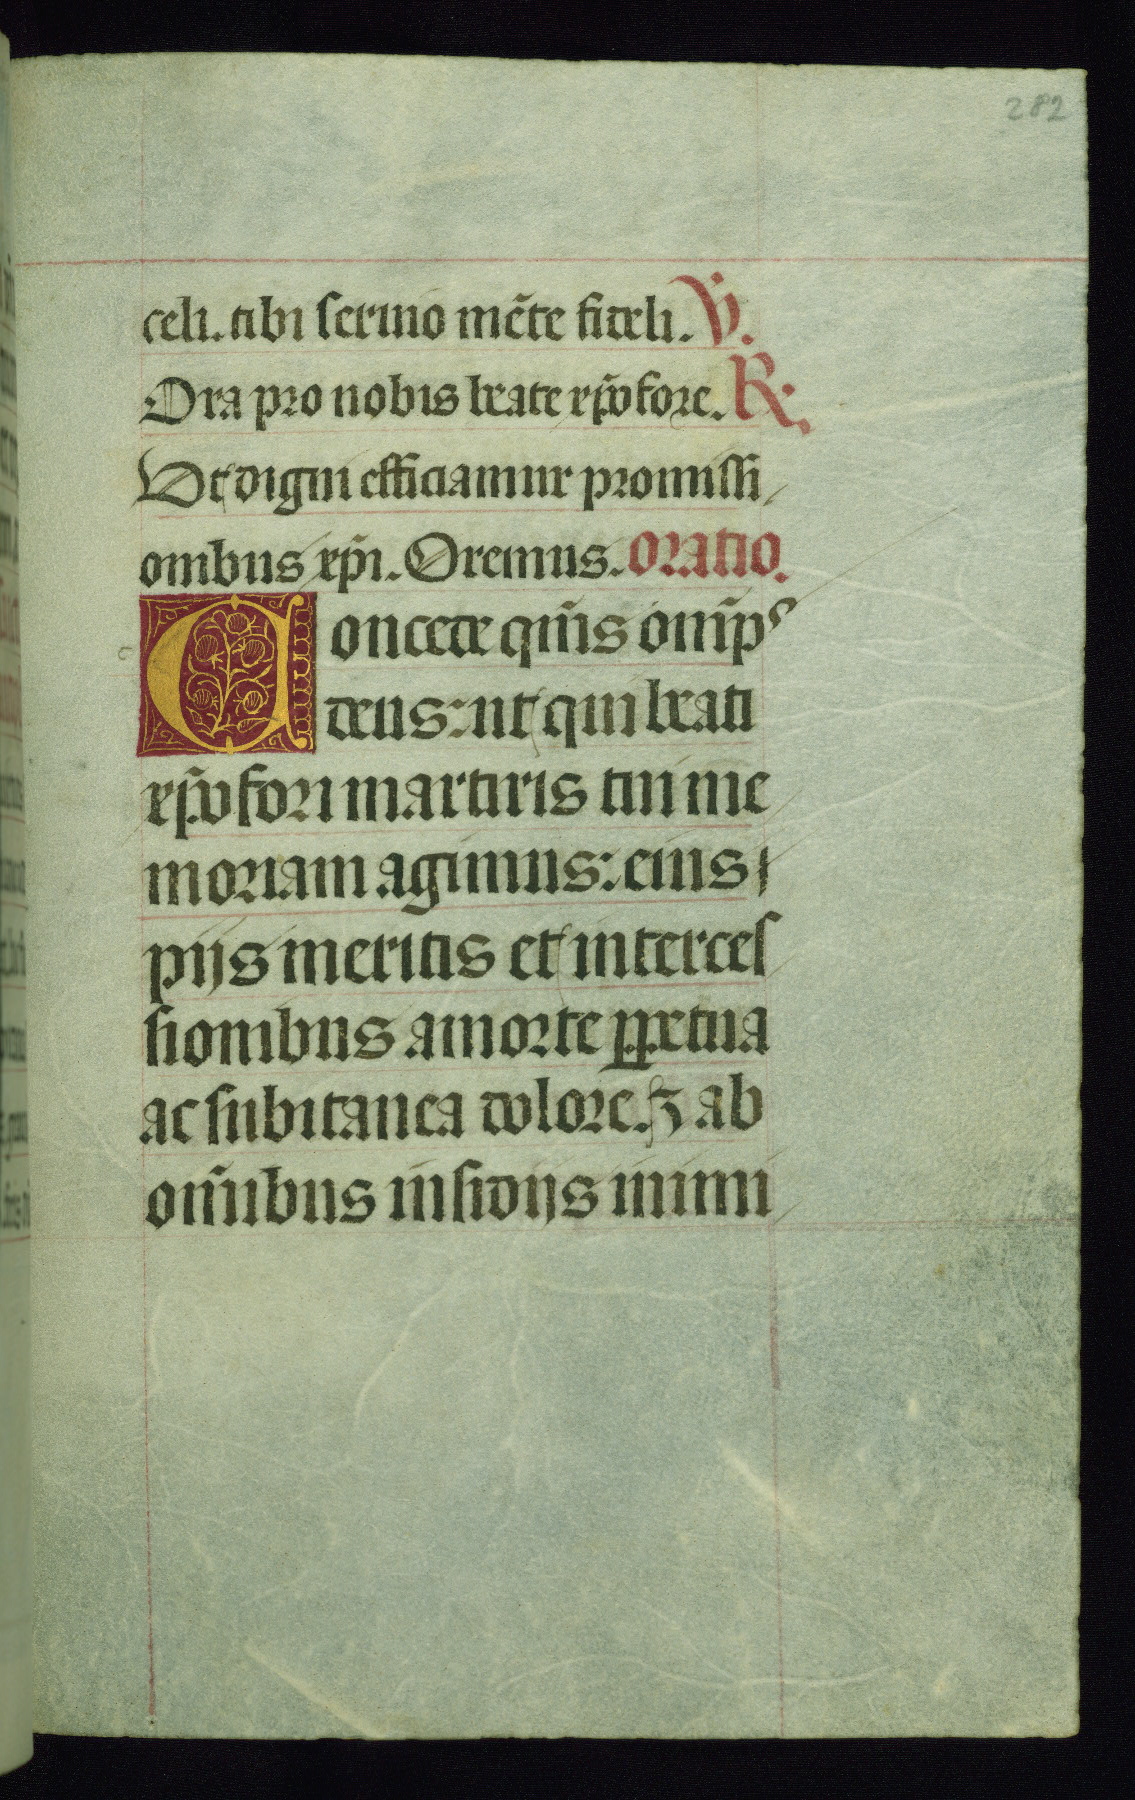 282
celi. tibi seruio mẽte fideli. V̇.
Ora pro nobis beate xp̃ofore. R.
Vt digni efficiamur promissi
onibus xp̃i. Oremus. Oratio.
Concede qm̃s om̃ps
deus: ut qui beati
xp̃ofori martiris tui me
moriam agimus: eius
pijs meritis et interces
sionibus a morte ꝑpetua
ac subitanea dolore. ⁊ ab
om̃ibus insidijs inimi